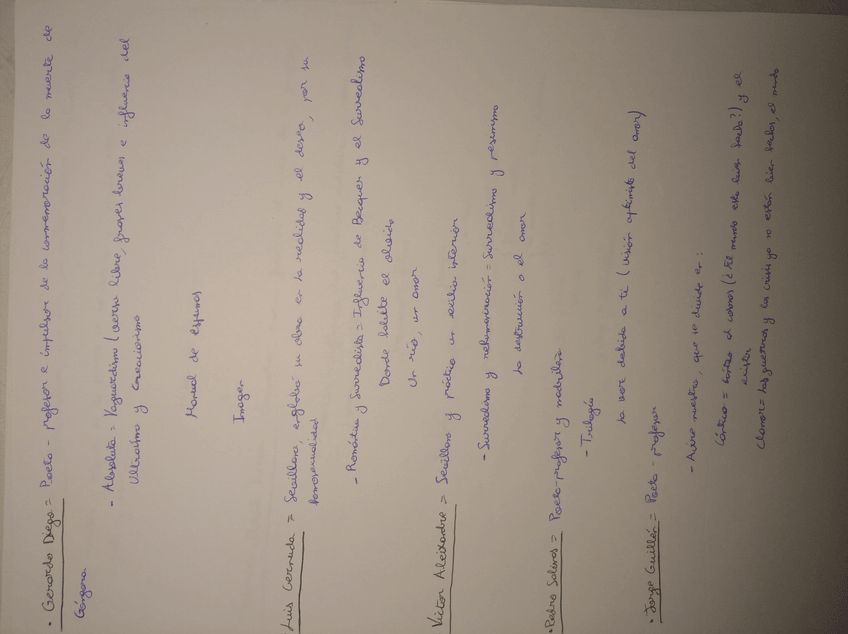 · Gerardo Diego = Poeta - profesor e impulsor de la conmemoración de la muerte de
Góngora
- Absoluta = Vanguardismo (verso libre, frases breves e influencia del
Ultraísmo y Creacionismo
Manual de espumas
Imagen
Luis Cernuda = Sevillano, englobó su obra en La realidad y el deseo, por su
homosexualidad
- Romántica y Surrealista = Influencia de Becquer y el Surrealismo
Donde habite el olvido
Un río, un amor
Victor Aleixandre = Sevillano y práctico un exilio interior
- Surrealismo y rehumanización = Surrealismo y pesimismo
La destrucción o el amor
· Pedro Salinas = Poeta-profesor y madrileño
- Trilogía
La voz debida a ti (visión optimista del amor)
· Jorge Guillén = Poeta - profesor
- Aire nuestro, que se divide en:
Cántico = canta al cosmos (¿El mundo esta bien hecho?) y el
existir
Clamor = Las guerras y las crisis ya no están bien hechas, el mundo